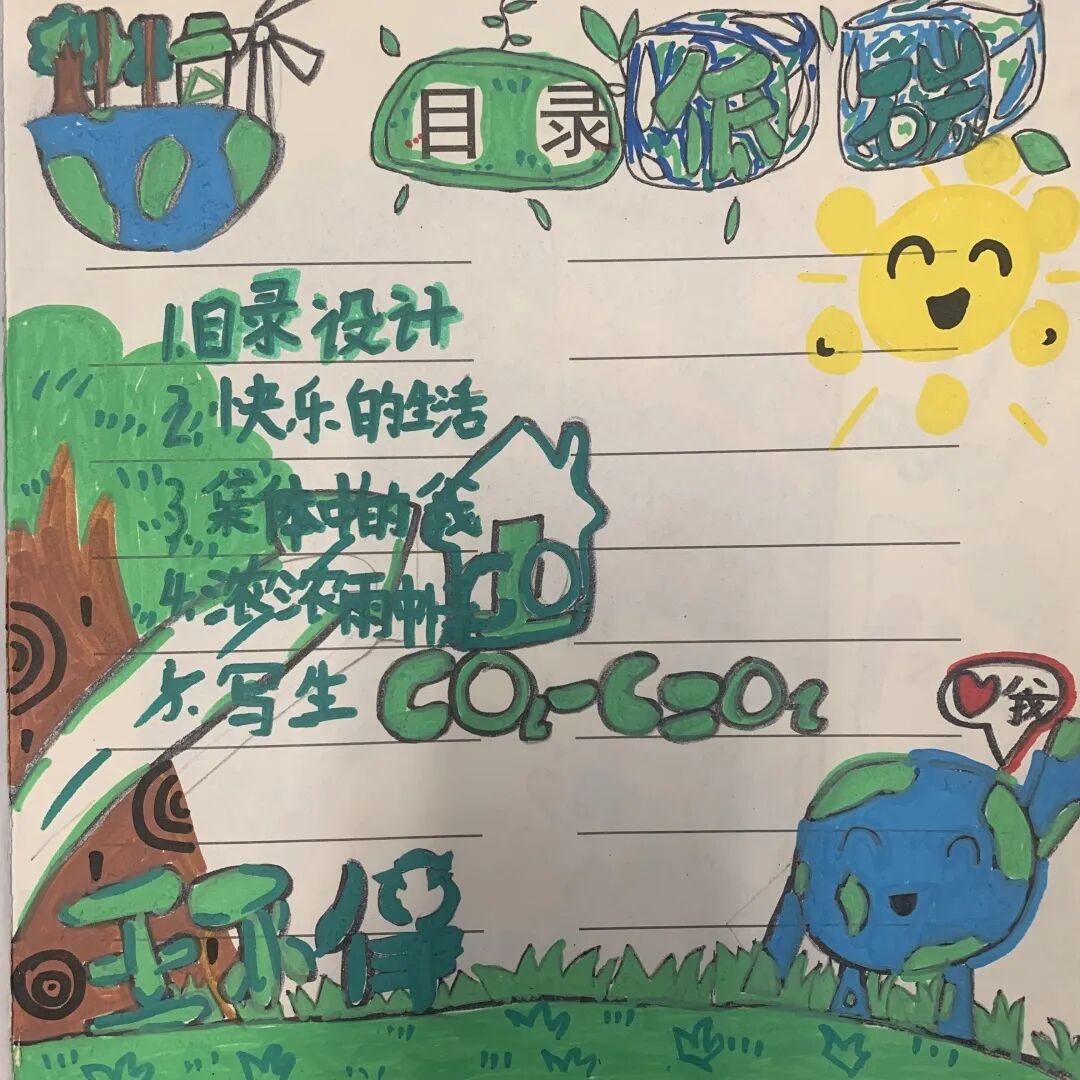 目录 低碳
1.目录设计
2.快乐的生活
3.集体中的我
4.浓浓雨中情
CO
5.写生 CO₂-C=O₂
我
环保